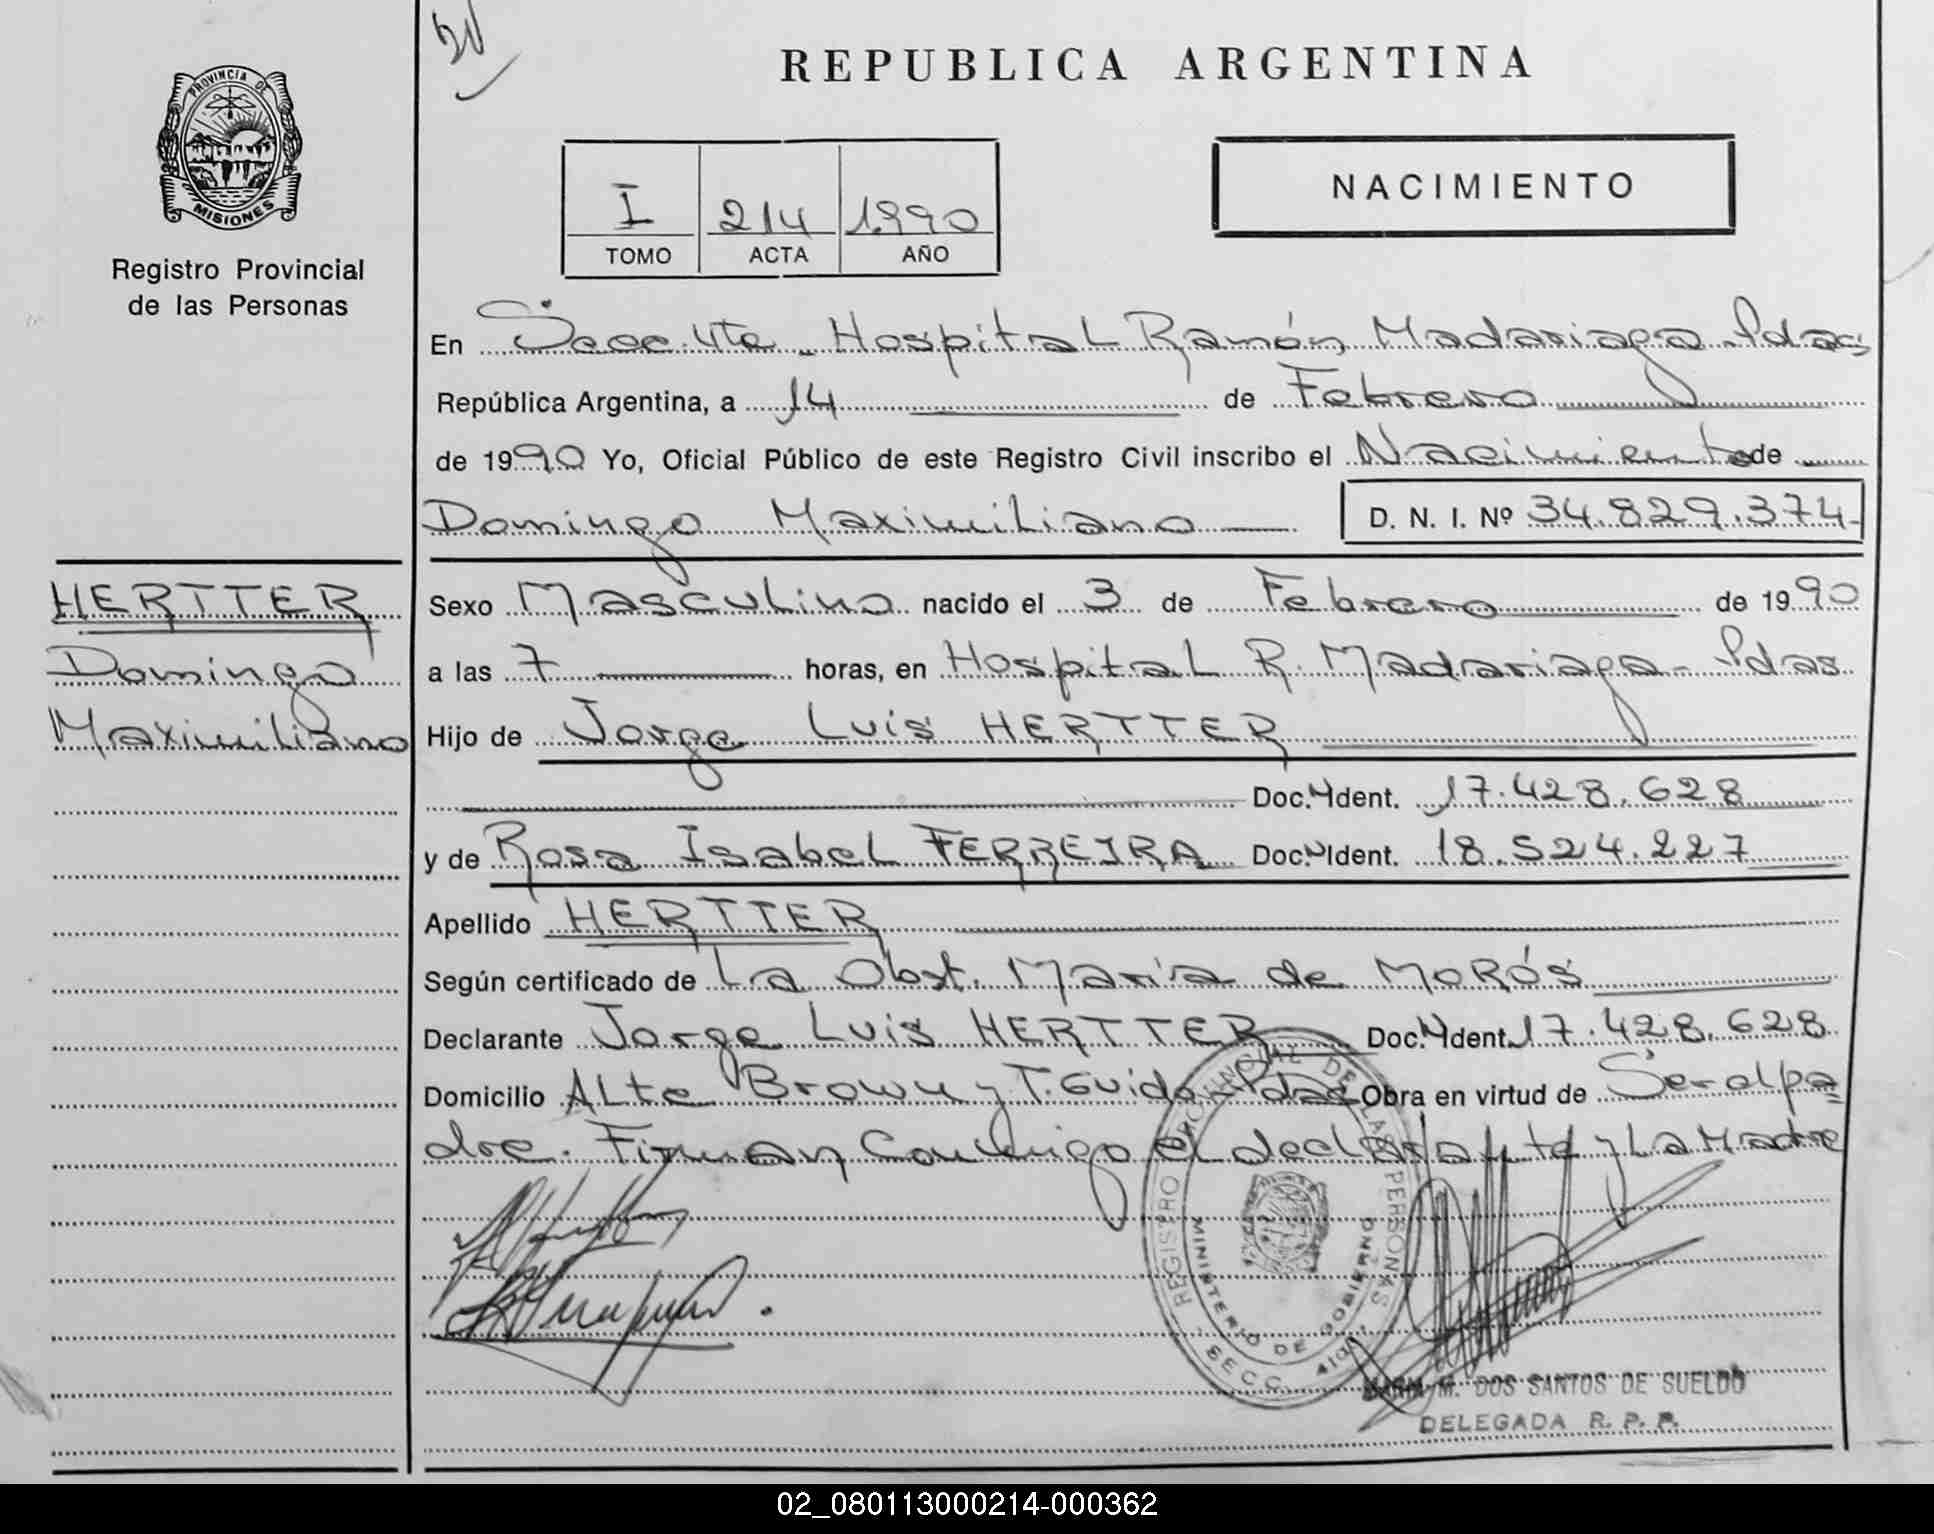 REPUBLICA ARGENTINA
PROVINCIA DE
MISIONES
Registro Provincial
de las Personas
I 214 1990
TOMO ACTA AÑO
NACIMIENTO
En Secc. 4ta - Hospital Ramón Madariaga - Pdas
República Argentina, a 14 de Febrero
de 1990 Yo, Oficial Público de este Registro Civil inscribo el Nacimiento de
Domingo Maximiliano D. N. I. Nº 34.829.374
HERTTER
Domingo
Maximiliano
Sexo Masculino nacido el 3 de Febrero de 1990
a las 7 horas, en Hospital R. Madariaga - Pdas
Hijo de Jorge Luis HERTTER
Doc. Ident. 17.428.628
y de Rosa Isabel FERREIRA Doc. Ident. 18.524.227
Apellido HERTTER
Según certificado de La Obst. María de MoRós
Declarante Jorge Luis HERTTER Doc. Ident. 17.428.628
Domicilio ALte Brown y T. Guido - Pdas Obra en virtud de Ser el pa=
dre. Firman Conmigo el declarante y La Madre
REGISTRO PROVINCIAL DE LAS PERSONAS
MINISTERIO DE GOBIERNO
SECC. 4ta
M. DOS SANTOS DE SUELDO
DELEGADA R. P. P.
02_080113000214-000362